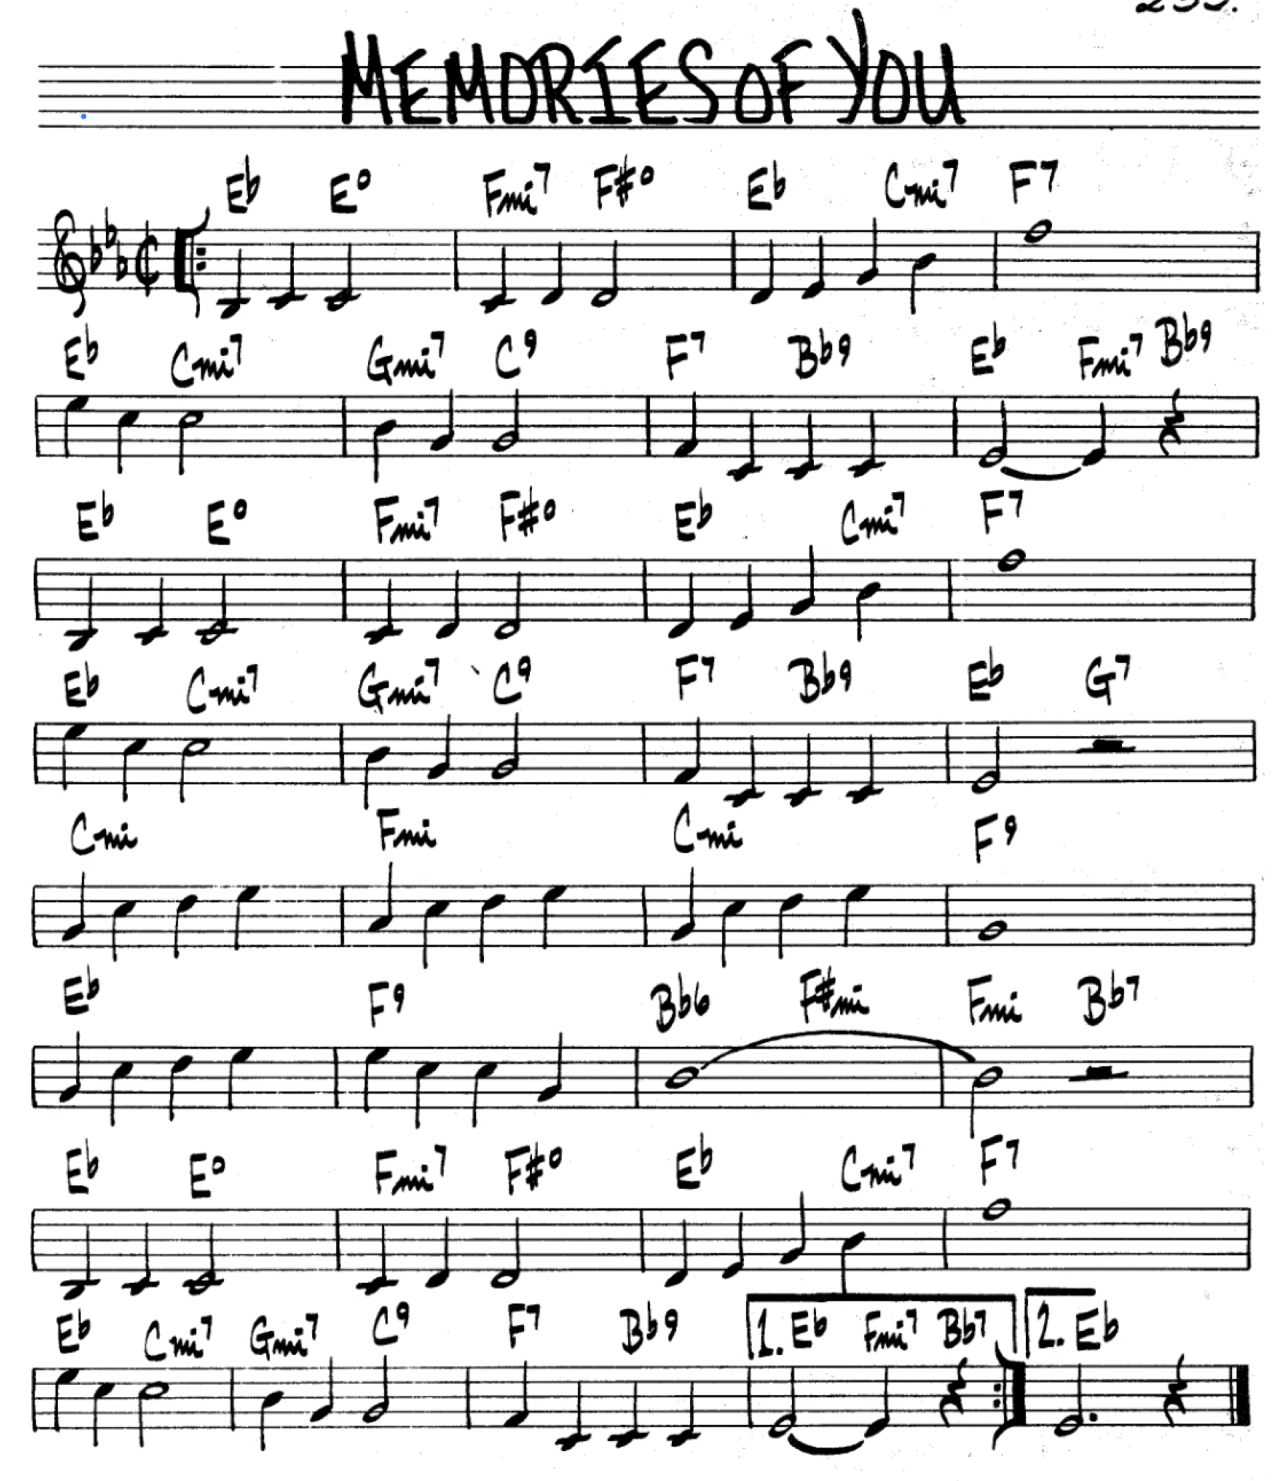 MEMORIES OF YOU
Eb E° Fmi7 F#° Eb Cmi7 F7
Eb Cmi7 Gmi7 C9 F7 Bb9 Eb Fmi7 Bb9
Eb E° Fmi7 F#° Eb Cmi7 F7
Eb Cmi7 Gmi7 C9 F7 Bb9 Eb G7
Cmi Fmi Cmi F9
Eb F9 Bb6 F#mi Fmi Bb7
Eb E° Fmi7 F#° Eb Cmi7 F7
Eb Cmi7 Gmi7 C9 F7 Bb9 1. Eb Fmi7 Bb7 2. Eb